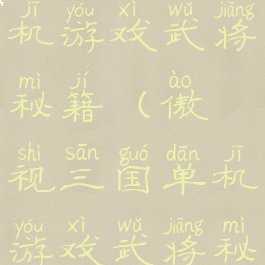 jī yóu xì wǔ jiāng
机游戏武将
mì jí ào
秘籍（傲
shì sān guó dān jī
视三国单机
yóu xì wǔ jiāng mì
游戏武将秘